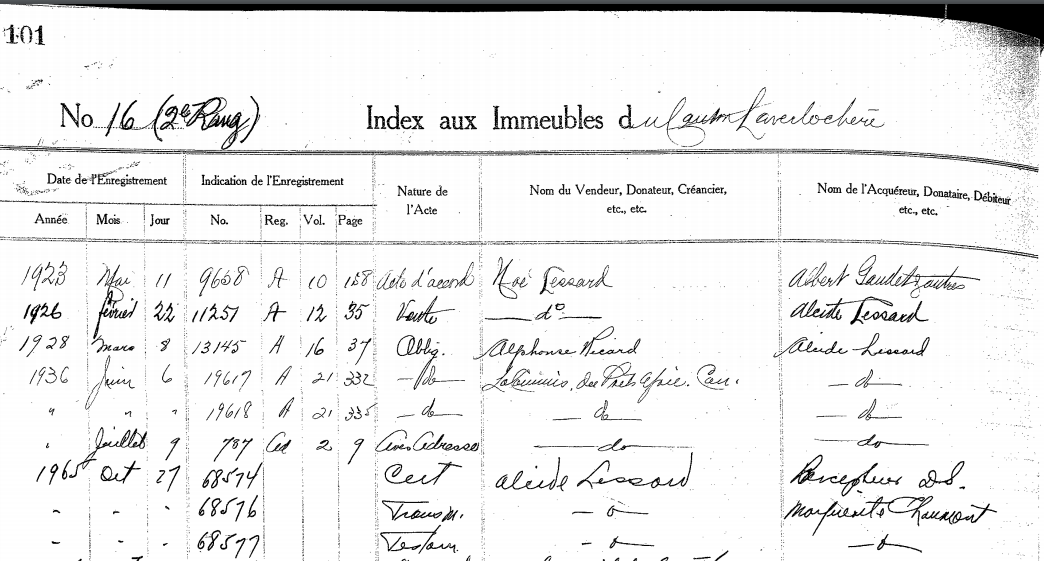 101
No 16 (2e Rang) Index aux Immeubles du Canton Laverlochère
Date de l'Enregistrement Indication de l'Enregistrement Nature de l'Acte Nom du Vendeur, Donateur, Créancier, etc., etc. Nom de l'Acquéreur, Donataire, Débiteur etc., etc.
Année Mois Jour No. Reg. Vol. Page
1923 Mai 11 9658 A 10 158 Acte d'accord Noé Lessard Albert Gaudet & autres
1926 février 22 11251 A 12 35 Vente do Alcide Lessard
1928 mars 8 13145 A 16 37 Oblig. Alphonse Ricard Alcide Lessard
1936 Juin 6 19617 A 21 332 do La Commis. du Prêt Agric. Can. do
" " " 19618 A 21 335 do do do
" Juillet 9 737 Ad 2 9 Avis adresse do do
1965 Oct 27 68574 Cert alcide Lessard Percepteur D.S.
- - - 68576 Transm. - o - Marguerite Chaumont
- - - 68577 Testam. - o - - o -